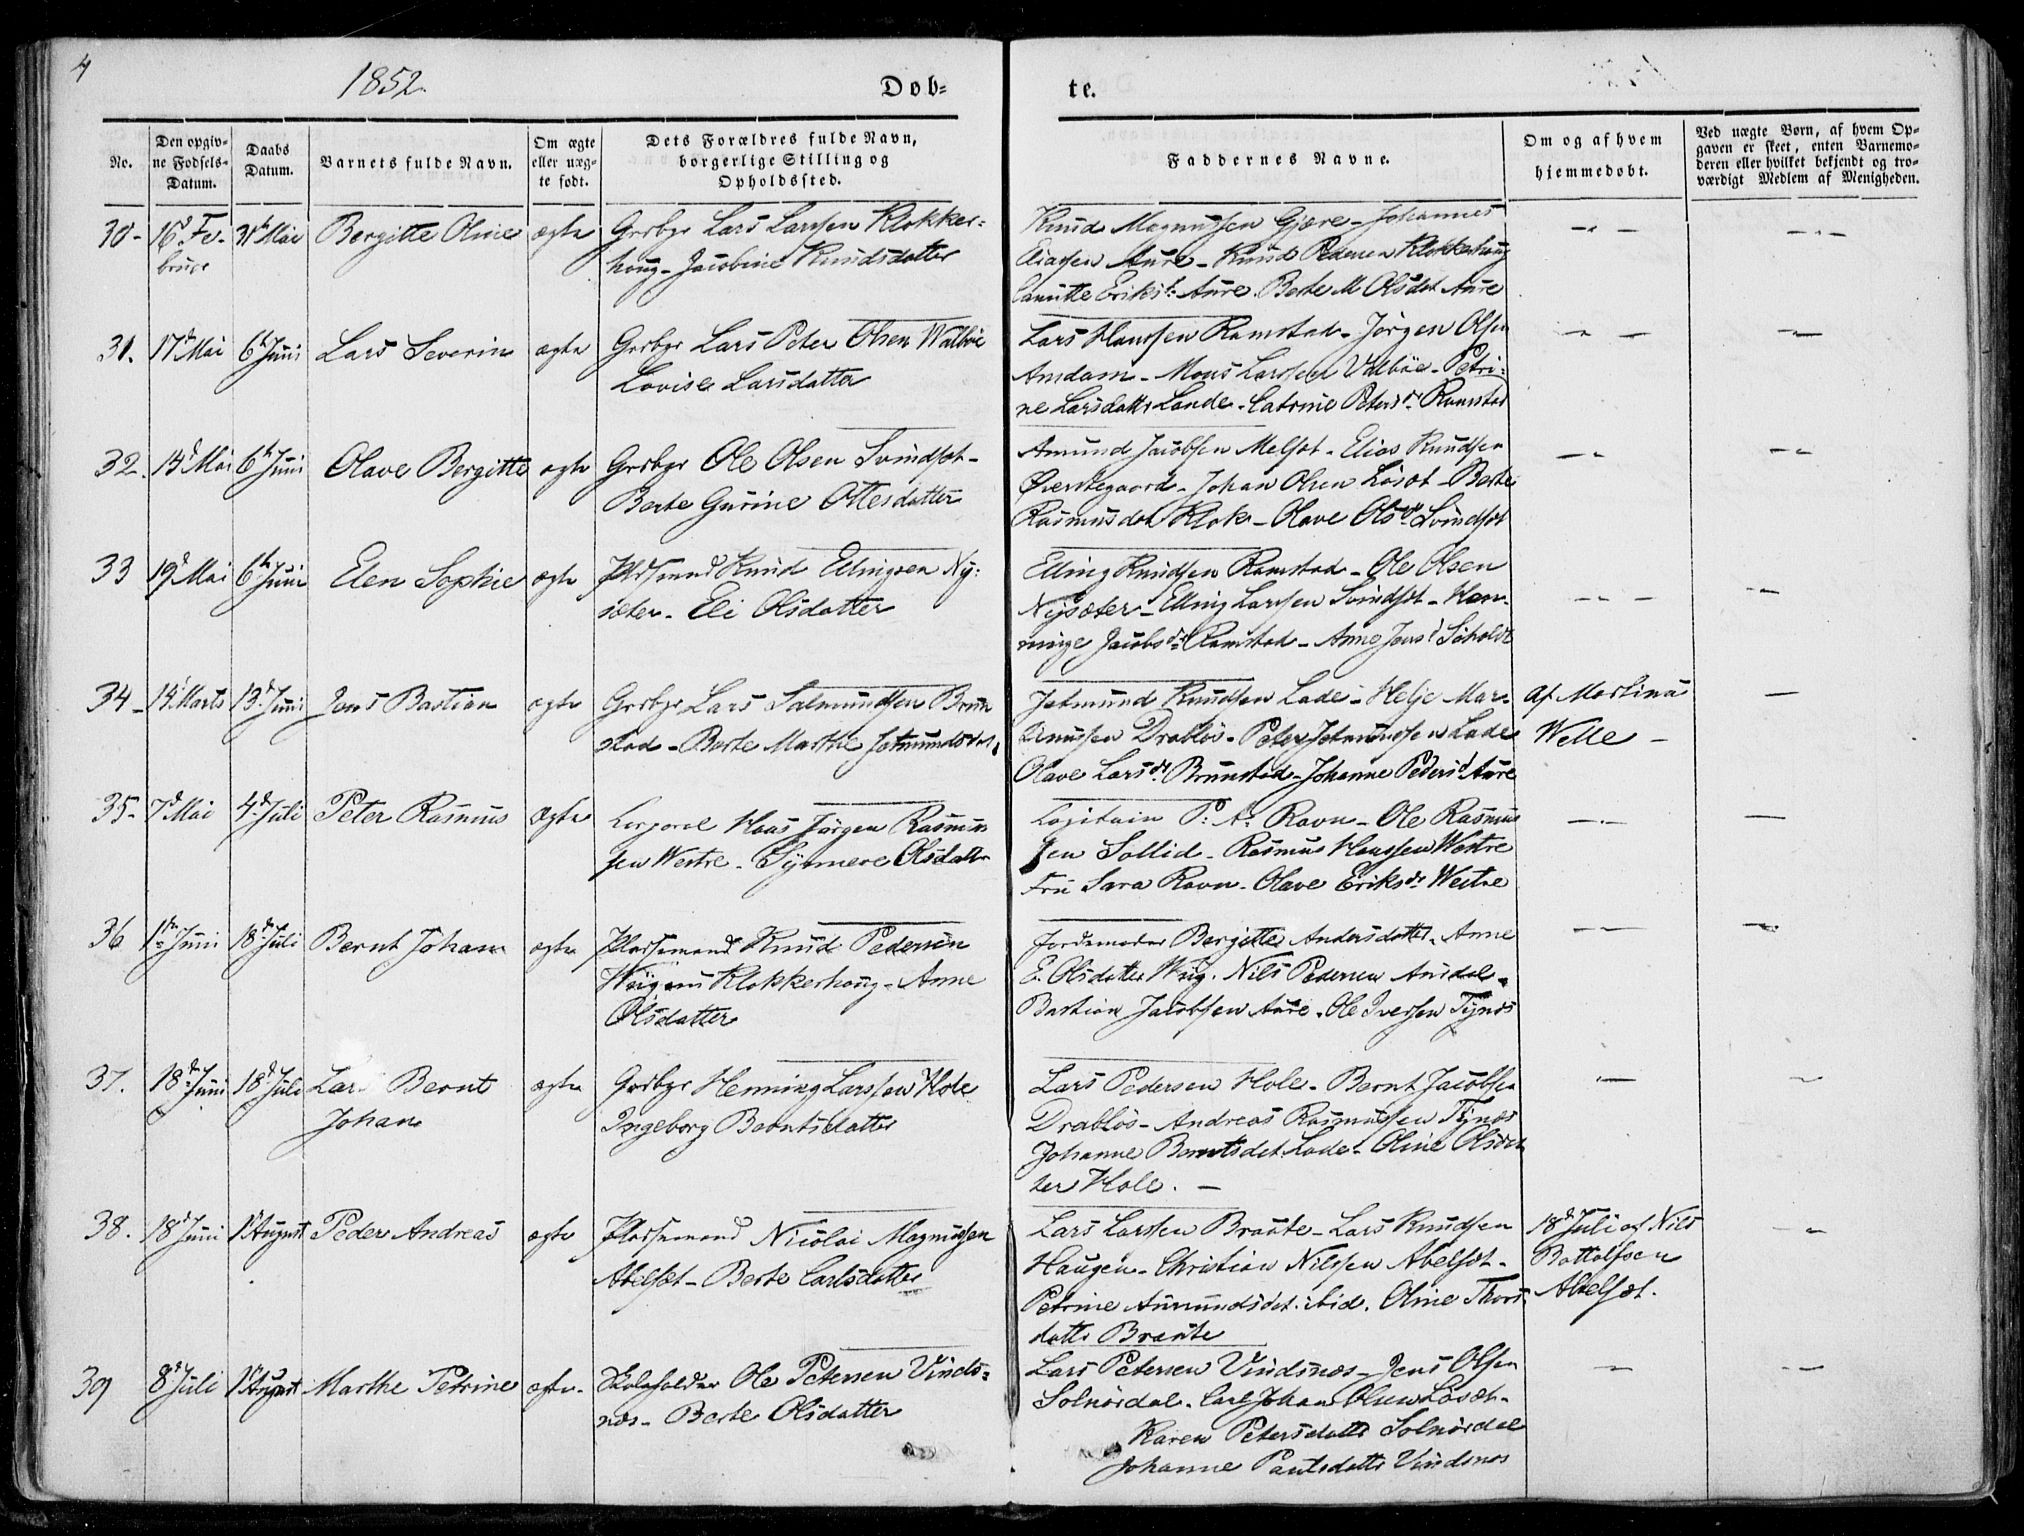 4
1852.
Døb-
te.
No.
Den opgiv-
ne Fødsels-
Datum.
Daabs
Datum.
Barnets fulde Navn.
Om ægte
eller uæg-
te født.
Dets Forældres fulde Navn,
borgerlige Stilling og
Opholdssted.
Faddernes Navne.
Om og af hvem
hjemmedøbt.
Ved uægte Børn, af hvem Op-
gaven er skeet, enten Barnemo-
deren eller hvilket bekjendt og tro-
værdigt Medlem af Menigheden.
30- 16d Fe- 31te Mai Bergitte Oline ægte Grdbgr Lars Larssen Klokker-
bruar
houg - Jacobine Knudsdatter
Knud Magnussen Gjære - Johannes
Eliassen Aure - Knud Pedersen Klokkerhoug
Eriksd. Aure. Berte M Olsdat Aure
31. 17d Mai 6te Juni Lars Severin ægte Grdbgr Lars Peter Olsen Walbøe
Lovise Larsdatter
Lars Hanssen Ramstad - Jørgen Olsen
Amdam - Mons Larssen Valbøe - Petri-
ne Larsdatter Lande - Catrine Petersdr Ramstad
32. 14d Mai 6te Juni Olave Bergitte ægte Grdbgr Ole Olsen Svindset -
Berte Gurine Ottesdatter
Amund Jacobsen Melset - Elias Knudsen
Øvrstegaard - Johan Olsen Løset - Berte
Rasmusdat Klok - Olave Olsdr Svindset
33 19d Mai 6te Juni Elen Sophie ægte Pladsmand Knud Ellingsen Ny-
sæter - Eli Olsdatter
Elling Knudsen Ramstad - Ole Olsen
Nysæter - Elling Larssen Svindset - Hen-
ninge Jacobsdr Ramstad - Anne Jensd Søholdt
34 - 14 Marts 13d Juni Jens Bastian ægte Grdbgr Lars Salmundsen Brun
stad - Berte Marthe Jetmundsdat.
Jetmund Knudsen Lade - Helje Mar-
tinussen Drabløs - Peter Jetmundsen Lade
Olave Larsdr Brunstad - Johanne Pedersd Aure
af Martinus
Welle -
35- 7d Mai 4d Juli Peter Rasmus ægte Corporal Hans Jørgen Rasmus
sen Westre - Synnerve Olsdatter
Capitain P. A. Ravn - Ole Rasmus
sen Sollid - Rasmus Hanssen Westre
Fru Sara Ravn - Olave Eriksdr Westre
36 1te Juni 18d Juli Bernt Johan ægte Pladsemand Knud Pedersen
Klokkerhoug - Anne
Olsdatter
Jordemoder Bergitte Andersdatter - Anne
E. Olsdatter Wiig. Nils Pedersen Amdal -
Bastian Jacobsen Aure - Ole Iversen Tynes
37. 18d Juni 18d Juli Lars Bernt ægte Grdbgr Henning Larssen Hole
Johan
Ingeborg Berntsdatter
Lars Pedersen Hole - Bernt Jacobsen
Drabløs - Andreas Rasmussen Tynæs
Johanne Berntsdat. Lade - Oline Olsdat
ter Hole. -
38. 18d Juni 1st August Peder Andreas ægte Pladsemand Nicolai Magnussen
Abelset - Berte Carlsdatter
Lars Larssen Braute - Lars Knudsen
Haugen - Christian Nilssen Abelset -
Petrine Amundsdat. ibid. Oline Thors
datter Braute
18d Juli af Nils
Bottolfsen
Abelset.
39 8d Juli 1st August Marthe Petrine ægte - Skoleholder Ole Petersen Vinds-
nes - Berte Olsdatter
Lars Petersen Vindsnes - Jens Olsen
Solnørdal - Carl Johan Olsen Løset -
Karen Petersdatter Solnørdal
Johanne Paulsdatter Vindsnes